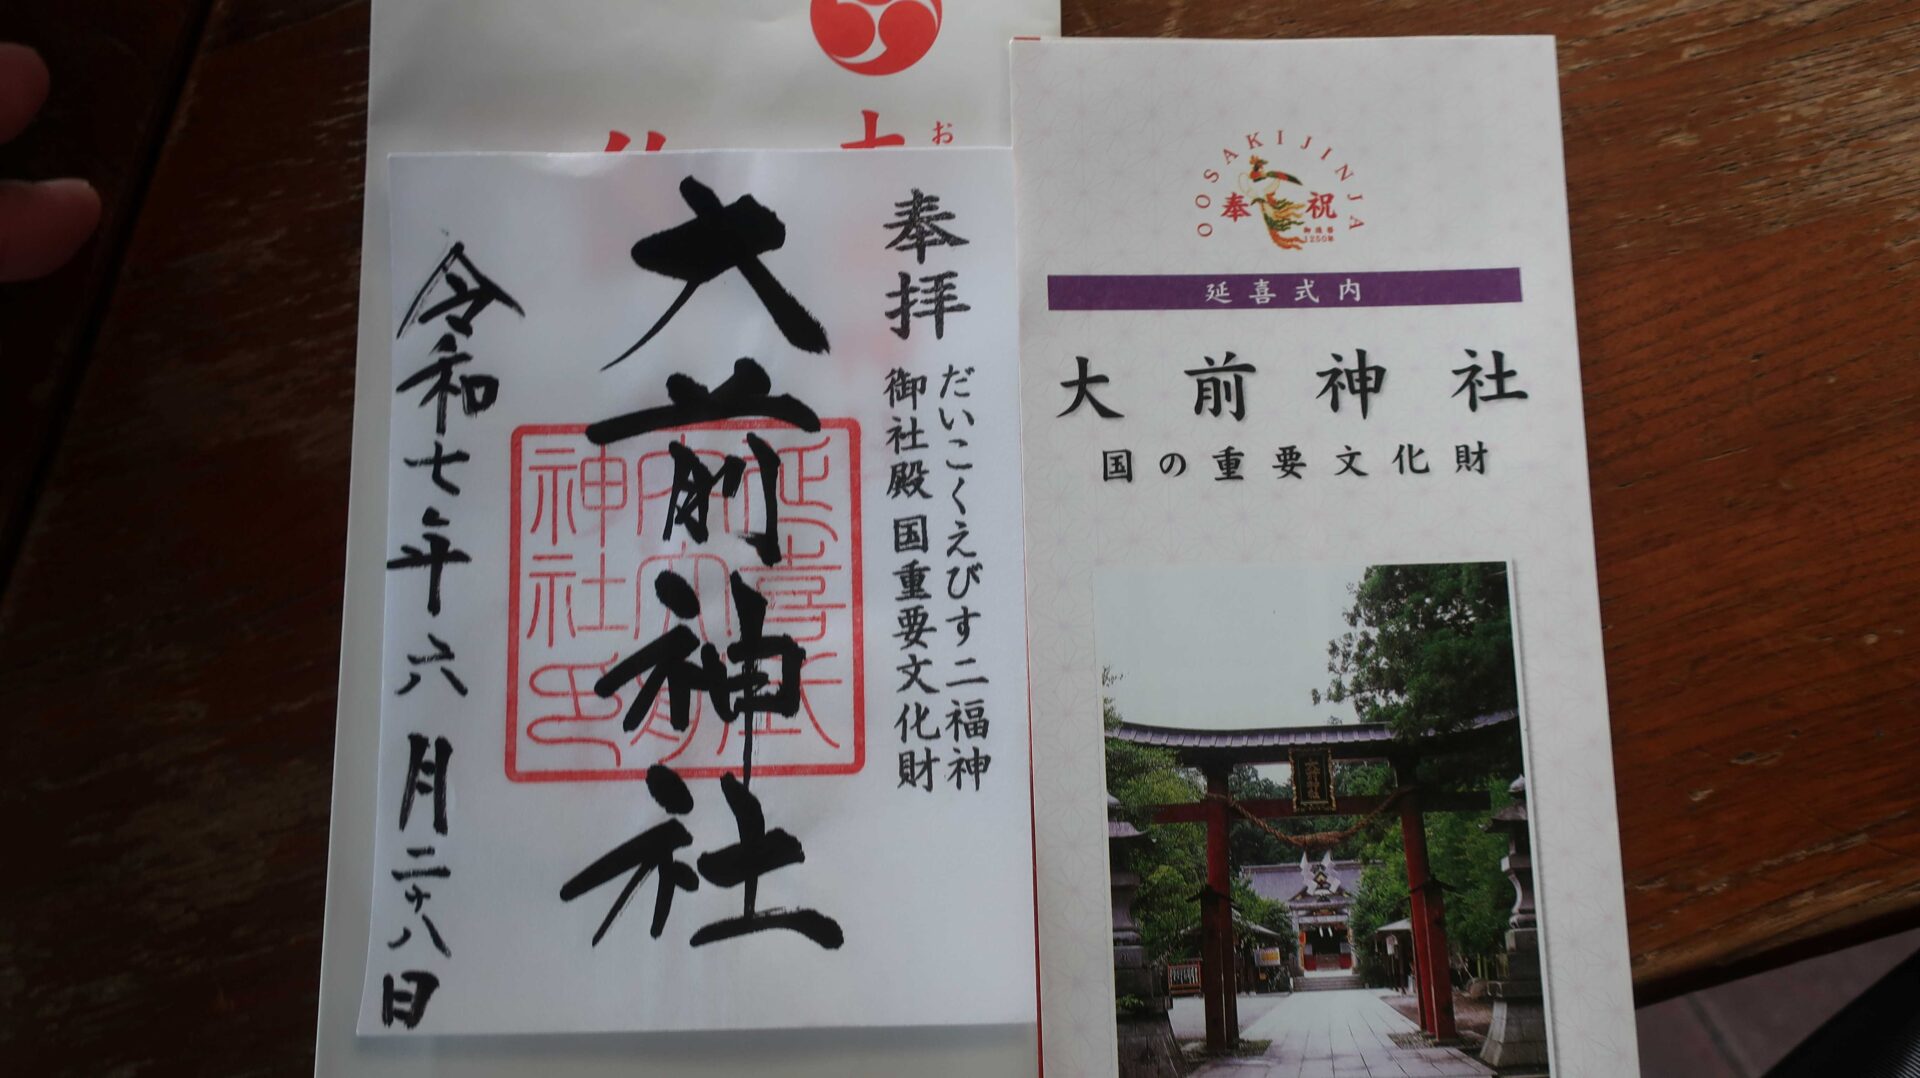 お
奉拝
だいこくえびす二福神
御社殿 国重要文化財
大前神社
延喜式
内大前
神社印
令和七年六月二十八日
OOSAKIJINJA
奉祝
御造替
1250年
延喜式内
大前神社
国の重要文化財
大前神社